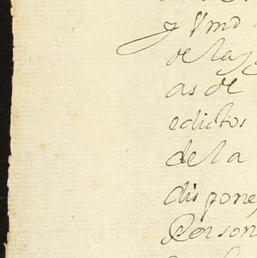 y Ymo
de la
as de
edictos
de la
dispone,
Person